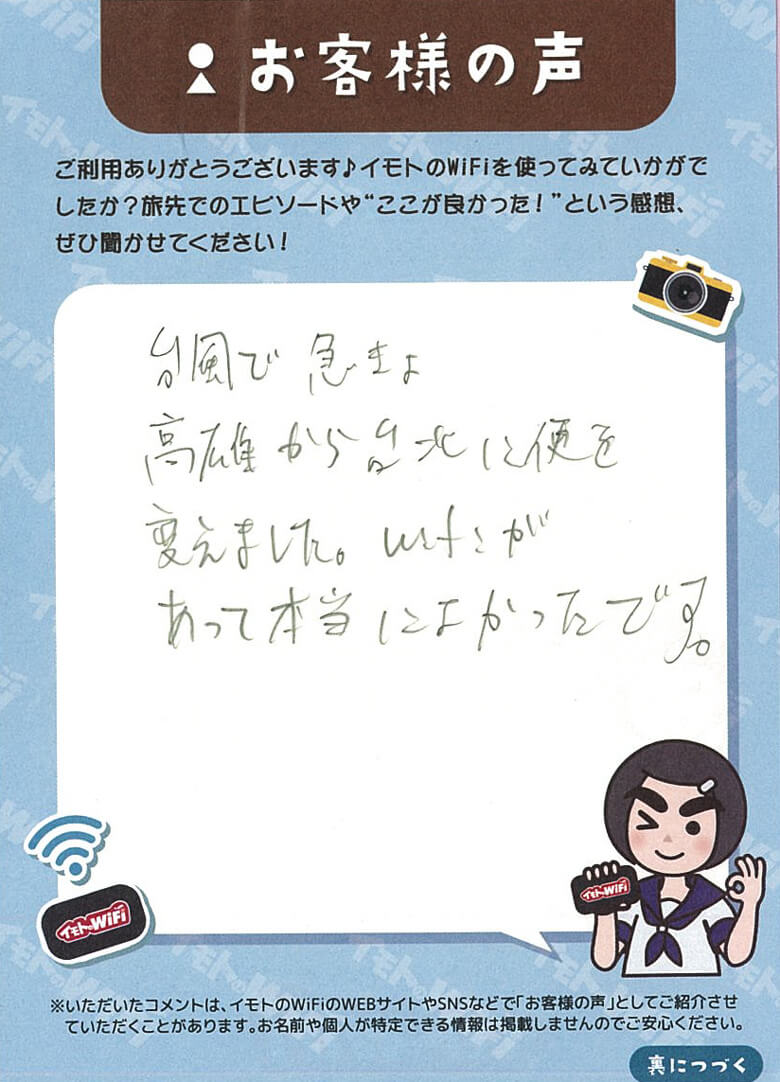 お客様の声
ご利用ありがとうございます♪イモトのWiFiを使ってみていかがで
したか？旅先でのエピソードや“ここが良かった！”という感想、
ぜひ聞かせてください！
台風で急きょ
高雄から台北に便を
変えました。wifiが
あって本当によかったです。
イモトのWiFi
イモトのWiFi
※いただいたコメントは、イモトのWiFiのWEBサイトやSNSなどで「お客様の声」としてご紹介させ
ていただくことがあります。お名前や個人が特定できる情報は掲載しませんのでご安心ください。
裏につづく